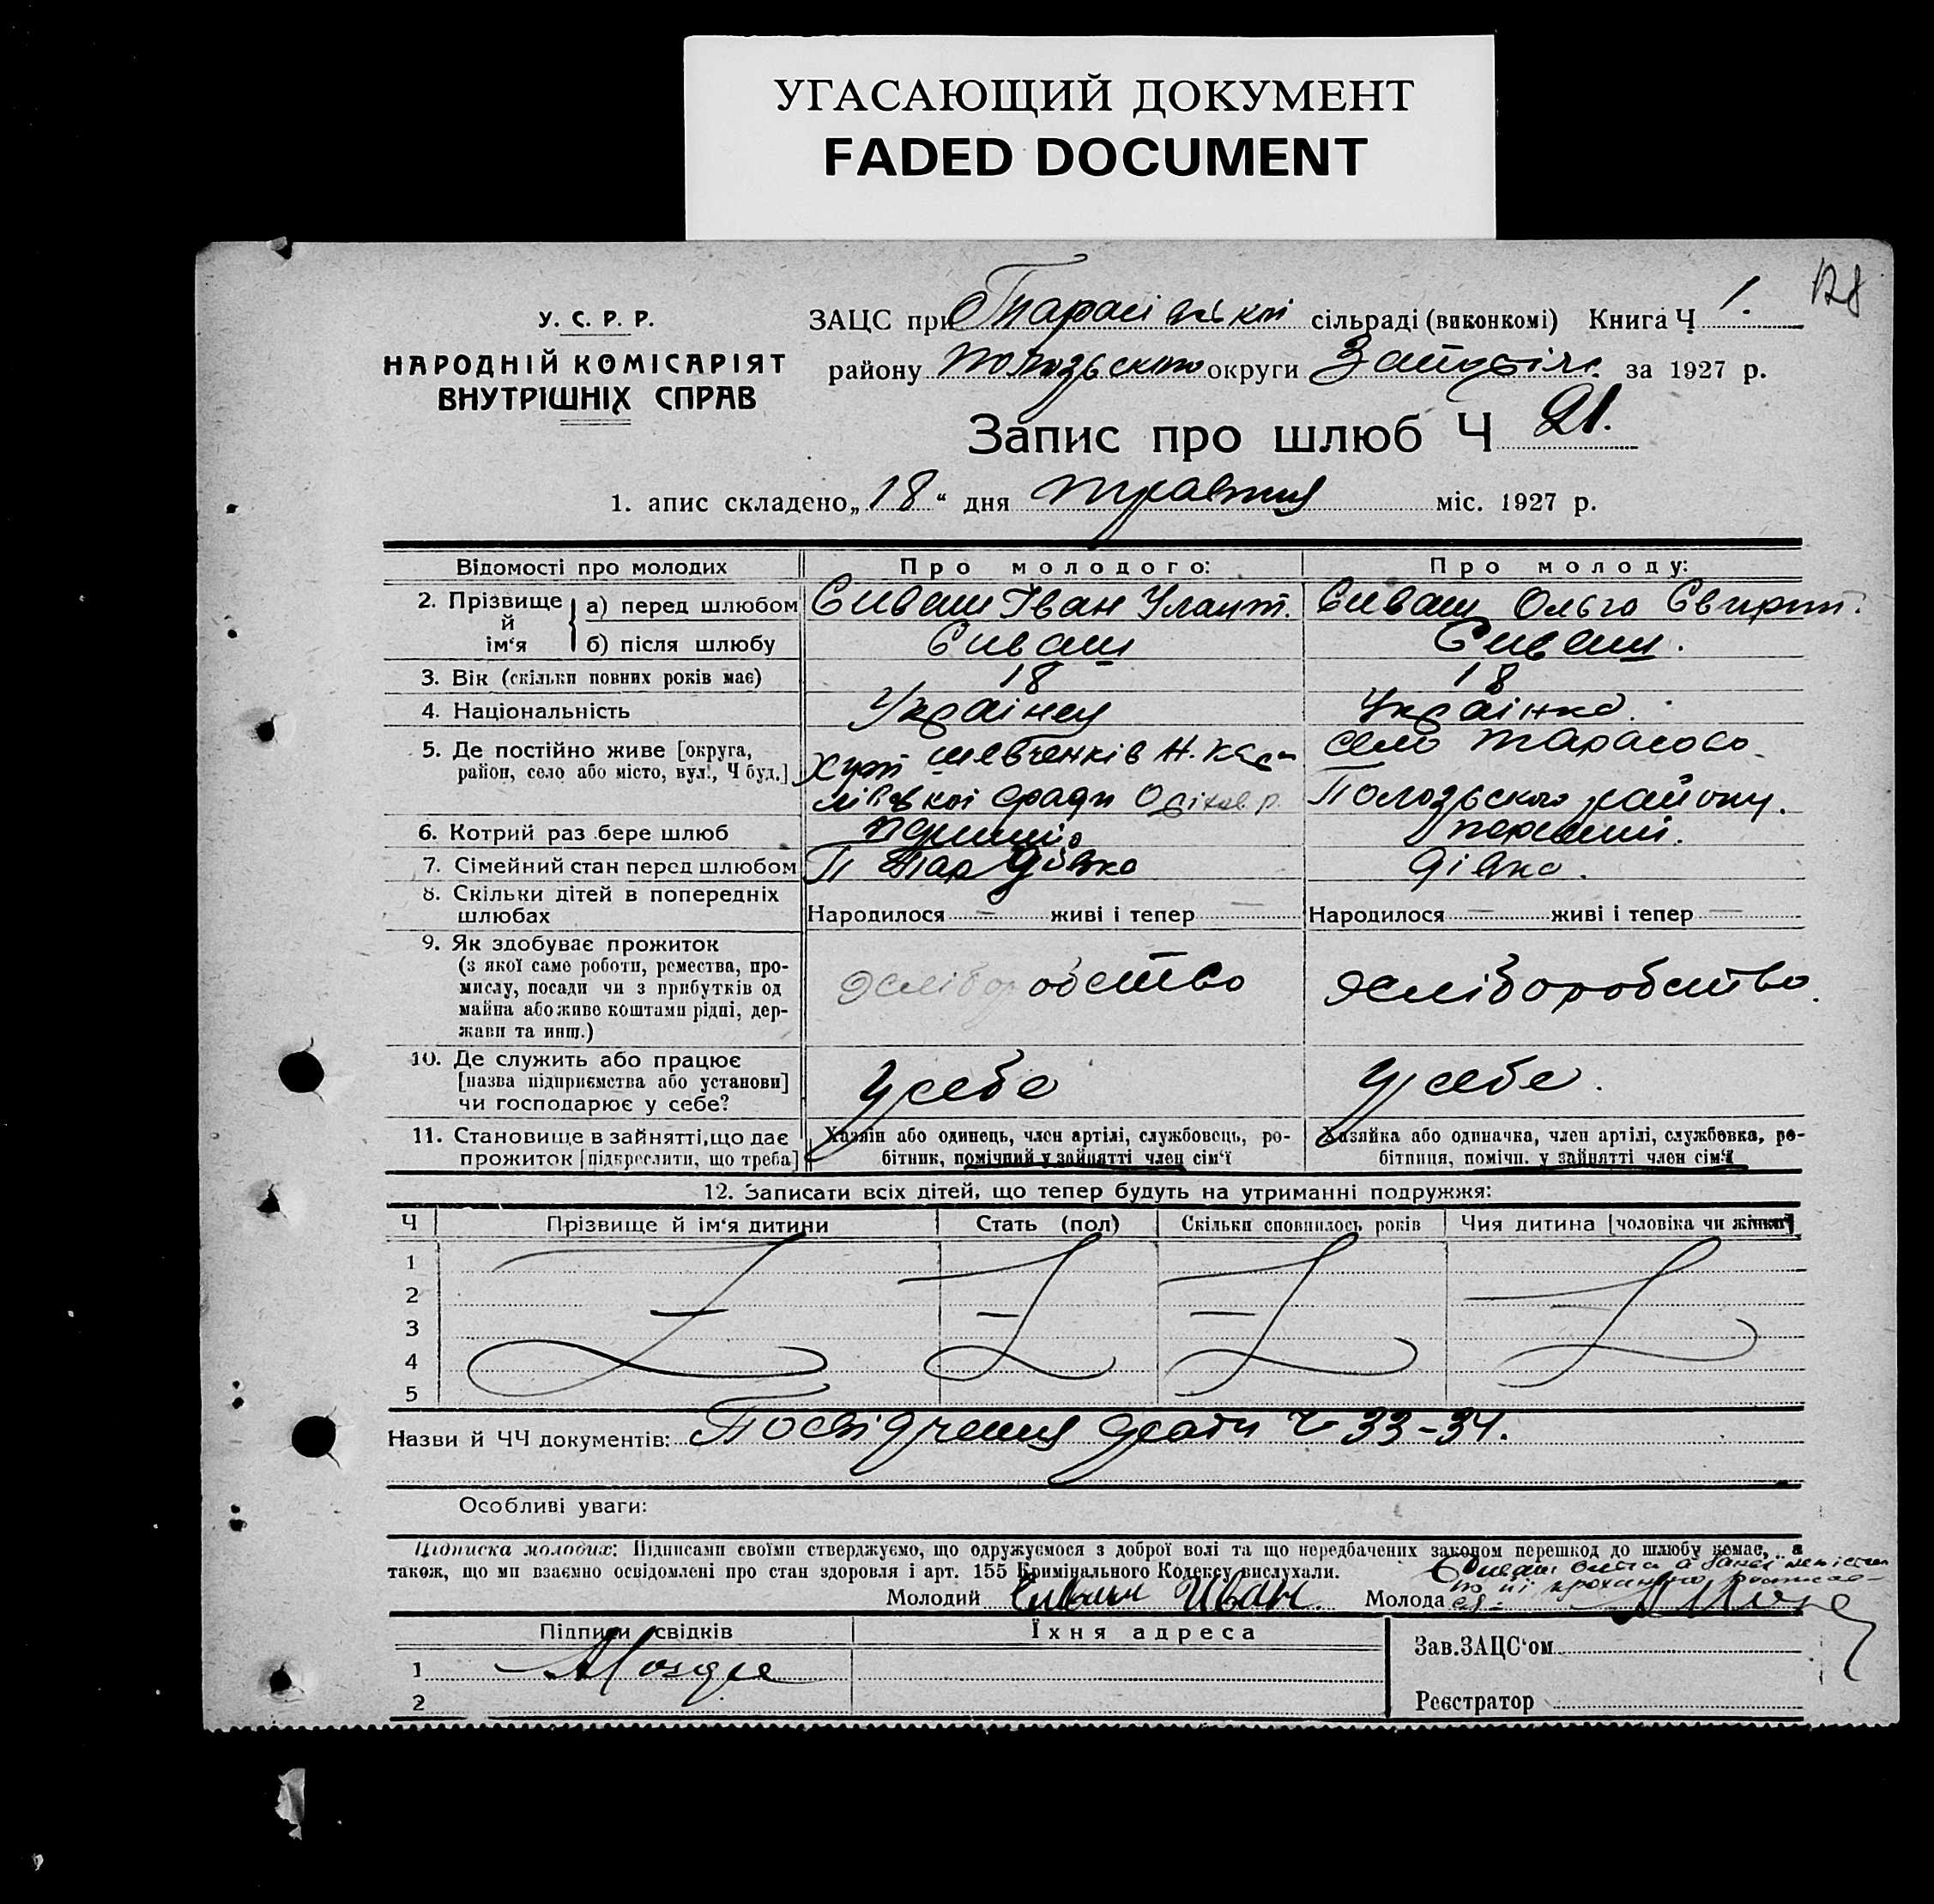 УГАСАЮЩИЙ ДОКУМЕНТ
FADED DOCUMENT
128
У. С. Р. Р.
НАРОДНІЙ КОМІСАРІЯТ
ВНУТРІШНІХ СПРАВ
ЗАЦС при Тарасівській сільраді (виконкомі) Книга Ч 1.
району Пологзьского округи Запоріж. за 1927 р.
Запис про шлюб Ч 21.
1. апис складено „18“ дня травня міс. 1927 р.
Відомості про молодих Про молодого: Про молоду:
2. Прізвище й ім‘я а) перед шлюбом Сиваш Іван Улант. Сиваш Ольга Свирит.
б) після шлюбу Сиваш Сиваш.
3. Вік (скільки повних років має) 18 18
4. Національність Українец Українка.
5. Де постійно живе [округа, район, село або місто, вул., Ч буд.] Хут Шевченків Н. село Тарасово
ради Оріхів. р. Пологзьского району.
6. Котрий раз бере шлюб перший перший.
7. Сімейний стан перед шлюбом Пар дівка.
8. Скільки дітей в попередніх шлюбах Народилося — живі і тепер — Народилося — живі і тепер —
9. Як здобуває прожиток
(з якої саме роботи, ремества, про-
мислу, посади чи з прибутків од
майна або живе коштами рідні, дер-
жави та инш.) хліборобство хліборобство.
10. Де служить або працює
[назва підприємства або установи]
чи господарює у себе? У себе У себе.
11. Становище в зайнятті, що дає прожиток [підкреслити, що треба]
Хазяїн або одинець, член артілі, службовець, ро-
бітник, помічний у зайнятті член сім‘ї
Хазяйка або одиначка, член артілі, службовка, ро-
бітниця, помічн. у зайнятті член сім‘ї
12. Записати всіх дітей, що тепер будуть на утриманні подружжя:
Ч Прізвище й ім‘я дитини Стать (пол) Скільки сповнилось років Чия дитина [чоловіка чи жінки]
1
2
3
4
5
Назви й ЧЧ документів: Посвідчення ради Ч 33-34.
Особливі уваги:
Підписка молодих: Підписами своїми стверджуємо, що одружуємося з доброї волі та що передбачених законом перешкод до шлюбу немає, а
також, що ми взаємно освідомлені про стан здоровля і арт. 155 Кримінального Кодексу вислухали.
Молодий Сиваш Иван. Молода Сиваш
Підписи свідків Їхня адреса
1
2
Зав. ЗАЦС‘ом
Реєстратор